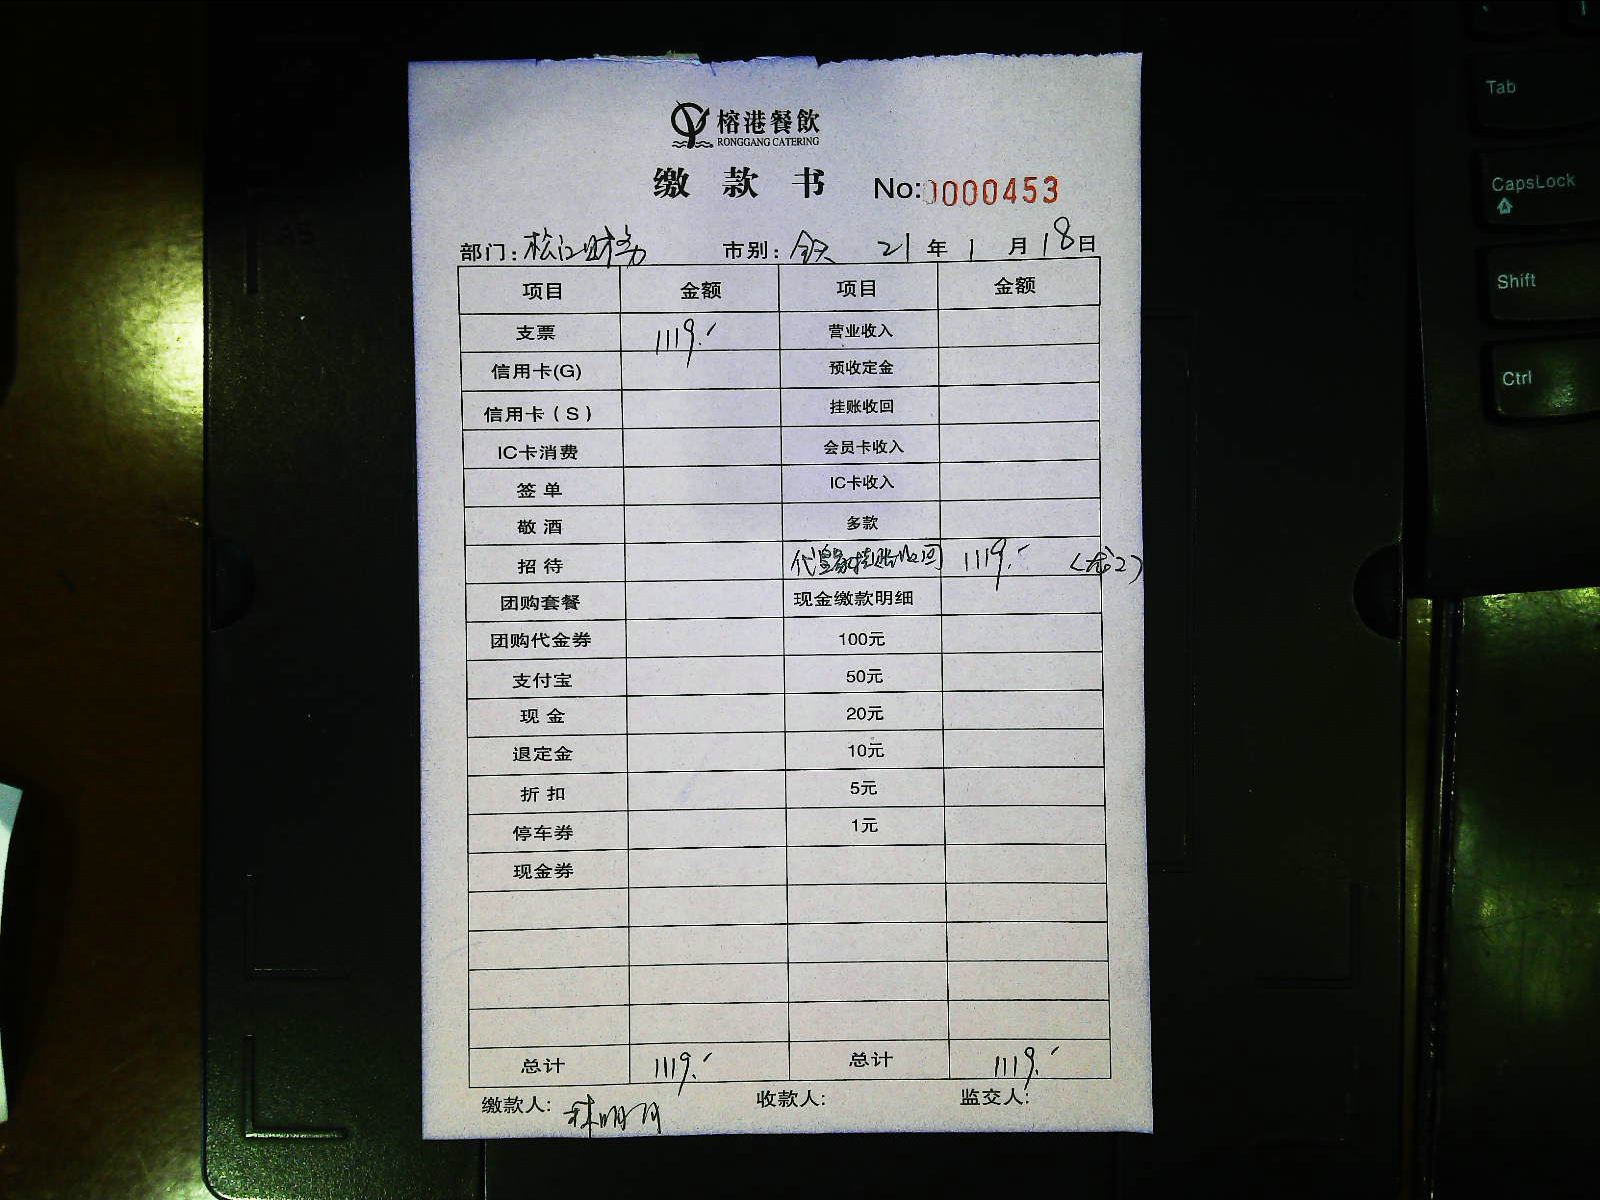 榕港餐飲
RONGGANG CATERING
缴款书 No:0000453
部门:松江财务 市别:全天 21年1月18日
项目 金额 项目 金额
支票 1119.- 营业收入
信用卡(G) 预收定金
信用卡(S) 挂账收回
IC卡消费 会员卡收入
签单 IC卡收入
敬酒 多款
招待 代皇家挂账收回 1119.-
团购套餐 现金缴款明细
团购代金券 100元
支付宝 50元
现金 20元
退定金 10元
折扣 5元
停车券 1元
现金券
总计 1119.- 总计 1119.-
缴款人: 林明月 收款人: 监交人:
Tab
CapsLock
Shift
Ctrl